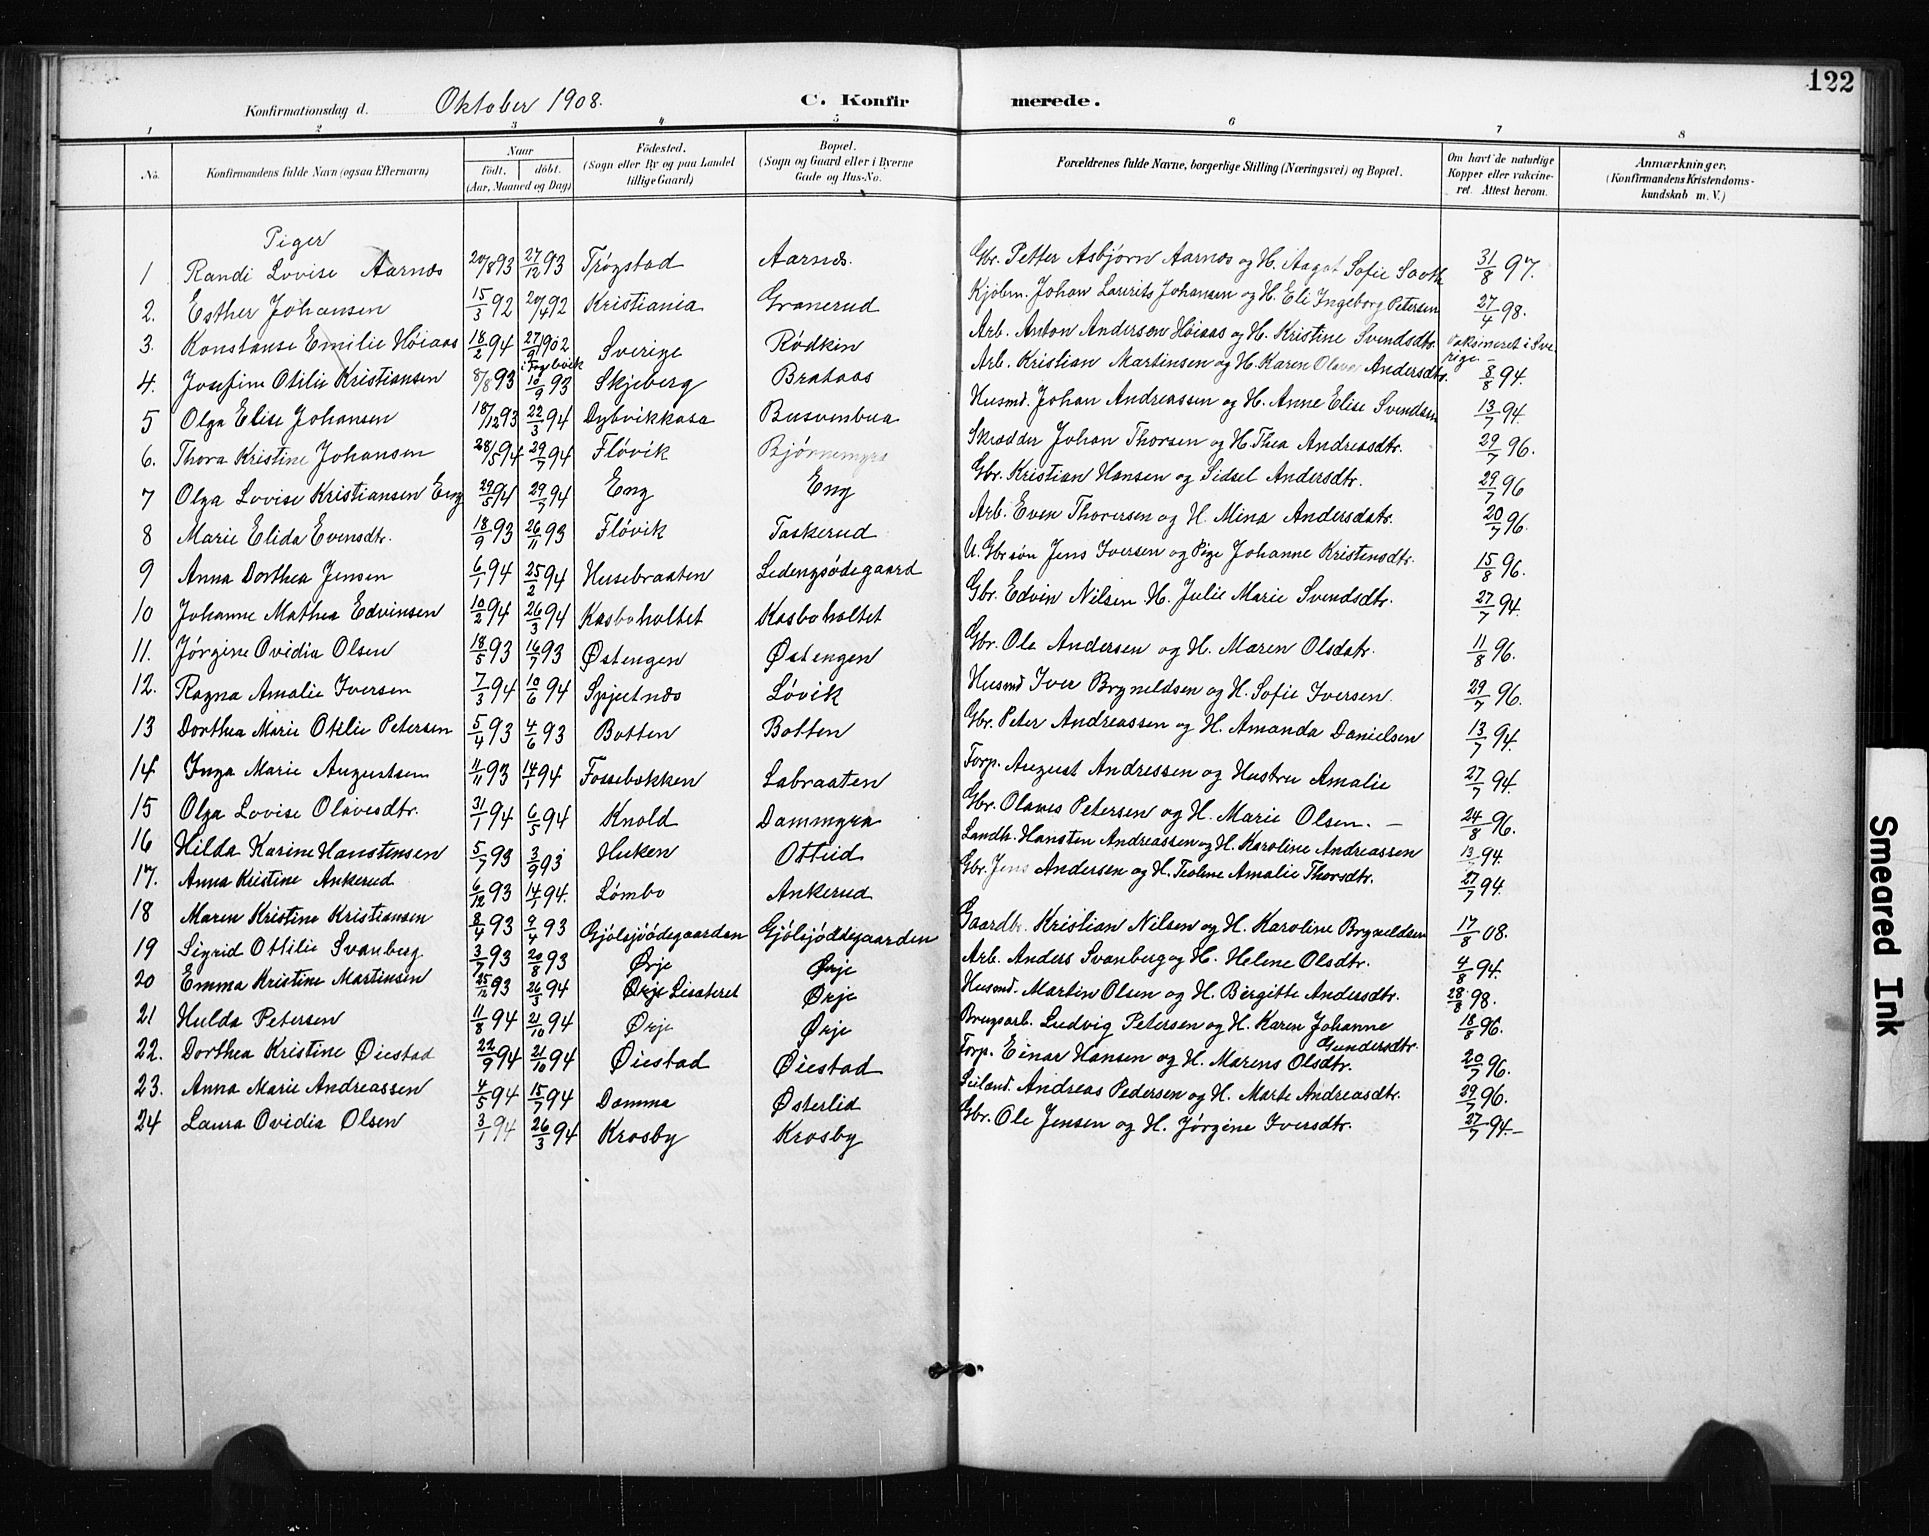 122
Konfirmationsdag d. Oktober 1908. C. Konfirmerede.
1 2 3 4 5 6 7 8
No. Konfirmandens fulde Navn (ogsaa Efternavn) Naar födt. döbt. (Aar, Maaned og Dag) Födested. (Sogn eller By og paa Landet tillige Gaard) Bopæl. (Sogn og Gaard eller i Byerne Gade og Hus-No. Forældrenes fulde Navne, borgerlige Stilling (Næringsvei) og Bopæl. Om havt de naturlige Kopper eller vakcineret. Attest herom. Anmærkninger. (Konfirmandens Kristendomskundskab m. V.)
Piger
1 Randi Lovise Aarnæs 20/8 93 27/12 93 Trøgstad Aarnæs. Gbr. Petter Asbjørn Aarnæs og H. Aagot Sofie 31/8 97.
2. Esther Johansen 15/3 92 20/4 92 Kristiania Granerud Kjøbm. Johan Laurits Johansen og H. Eli Ingeborg Petersen 27/4 98.
3. Konstanse Emilie Høiaas 18/2 94 27/9 1902 Sverige Rødkin Arb. Anton Andersen Høiaas og H. Kristine Svendsdtr. Vaksineret i Sverige. –
4. Josefine Otilie Kristiansen 8/8 93 10/9 93 Skjeberg Brataas Arb. Kristian Martinsen og H. Karen Olava Andersdtr. 8/8 94.
5 Olga Elise Johansen 18/12 93 22/3 94 Dybvikkasa Busvenbua Husmd. Johan Andreassen og H. Anne Elise Svendsen 13/7 94.
6. Thora Kristine Johansen 28/5 94 29/7 94 Fløvik Bjørnemyra Skrædder Johan Thorsen og H. Thea Andreasdtr. 29/7 96.
7 Olga Lovise Kristiansen Eng 29/5 94 29/7 94 Eng Eng Gbr. Kristian Hansen og Sidsel Andersdtr. 29/7 96
8 Marie Elida Evensdtr. 18/9 93 26/11 93 Fløvik Taskerud Arb. Even Thoresen og H. Mina Andersdatr. 20/7 96.
9 Anna Dorthea Jensen 6/1 94 25/2 94 Husebraaten Ledengsødegaard U. Gbrsøn Jens Iversen og Pige Johanne Kristensdtr. 15/8 96.
10 Johanne Mathea Edvinsen 10/2 94 26/3 94 Kasboholtet Kasboholtet Gbr. Edvin Nilsen H. Julie Marie Svendsdtr. 27/7 94.
11. Jørgine Ovidia Olsen 18/5 93 16/7 93 Østengen Østengen Gbr. Ole Andersen og H. Maren Olsdatr. 11/8 96.
12. Ragna Amalie Iversen 7/3 94 10/6 94 Spjutnæs Løvik Husmd Iver Bryneldsen og H. Sofie Iversen. 29/7 96.
13 Dorthea Marie Otilie Petersen 5/4 93 4/6 93 Botten Botten Gbr. Peter Andreassen og H. Amanda Danielsen 13/7 94.
14 Inga Marie Augustsen 11/11 93 14/1 94 Fossebakken Labraaten Forp. August Andressen og Hustru Amalie 27/7 94.
15 Olga Lovise Olavesdtr. 31/1 94 6/5 94 Knold Dammyra Gbr. Olaves Petersen og H. Marie Olsen. – 24/8 96.
16 Hilda Karine Hanstensen 5/7 93 3/9 93 Huken Otteid Landh. Hansten Andreassen og H. Karoline Andreassen 13/ 94.
17. Anna Kristine Ankerud 6/12 93 14/1 94. Lømbo Ankerud Gbr. Jens Andersen og H. Teoline Amalie Thorsdtr. 27/7 94.
18 Maren Kristine Kristiansen 8/4 93 9/4 93 Gjølsjøødegaarden Gjølsjøødegaarden Gaardbr. Kristian Nilsen og H. Karoline Bryneldsen 17/8 08.
19 Sigrid Ottilie Svanberg 3/7 93 20/8 93 Ørje Ørje Arb. Anders Svanberg og H. Helene Olsdtr. 4/8 94.
20 Emma Kristine Martinsen 25/12 93 26/3 94 Ørje Lisæteret Ørje Husmd. Martin Olsen og H. Birgitte Andersdtr. 28/8 98.
21 Hulda Petersen 11/8 94 21/10 94 Ørje Ørje Brugsarb. Ludvig Petersen og H. Karen Johanne Gundersdtr. 18/8 96.
22. Dorthea Kristine Øiestad 22/9 94 21/10 94 Øiestad Øiestad Forp. Einar Hansen og H. Marens Olsdtr. 20/7 96.
23. Anna Marie Andreassen 4/5 94 15/7 94 Damma Østerlid Andreas Pedersen og H. Marte Andreasdtr. 29/7 96.
24 Laura Ovidia Olsen 3/1 94 26/3 94 Krosby Krosby Gbr. Ole Jensen og H. Jørgine Iversdtr. 27/7 94.–
Smeared Ink